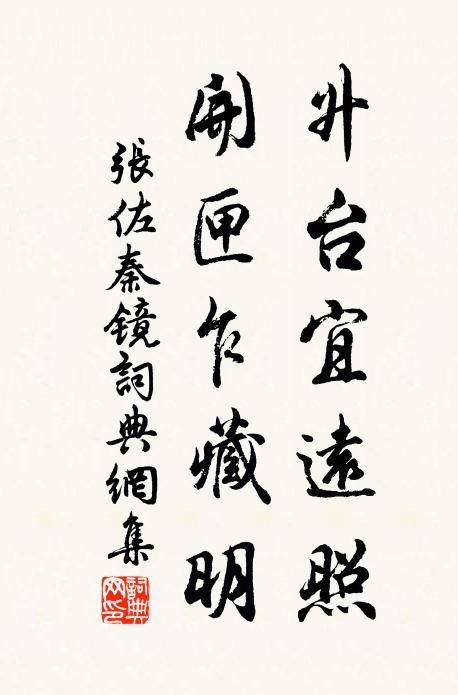 升台宜遠照
開匣乍藏明
張佐秦鏡詞典網集
詞典網印